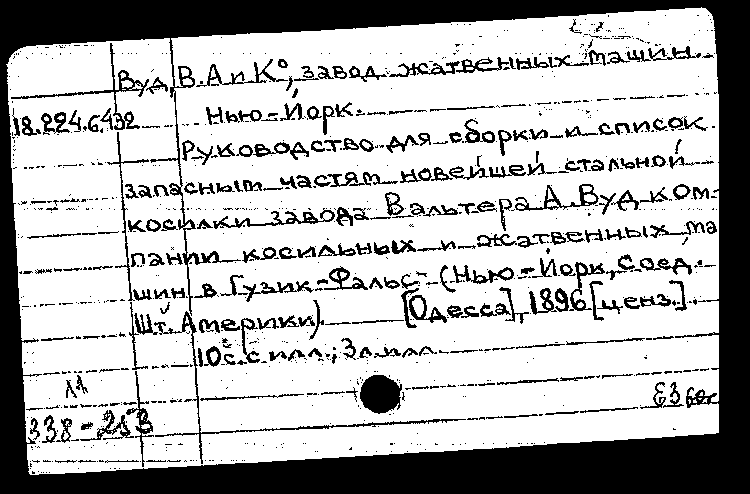 Вуд, В. А и К°, завод жатвенных машин.
18.224.6.432 Нью-Йорк.
Руководство для сборки и список
запасным частям новейшей стальной
косилки завода Вальтера А. Вуд ком-
пании косильных и жатвенных ма
шин в Гузик-Фальс- (Нью-Йорк, Соед.
Шт. Америки). [Одесса], 1896 [ценз.].
10 с. с илл.; 3 л. илл.
11
338-253